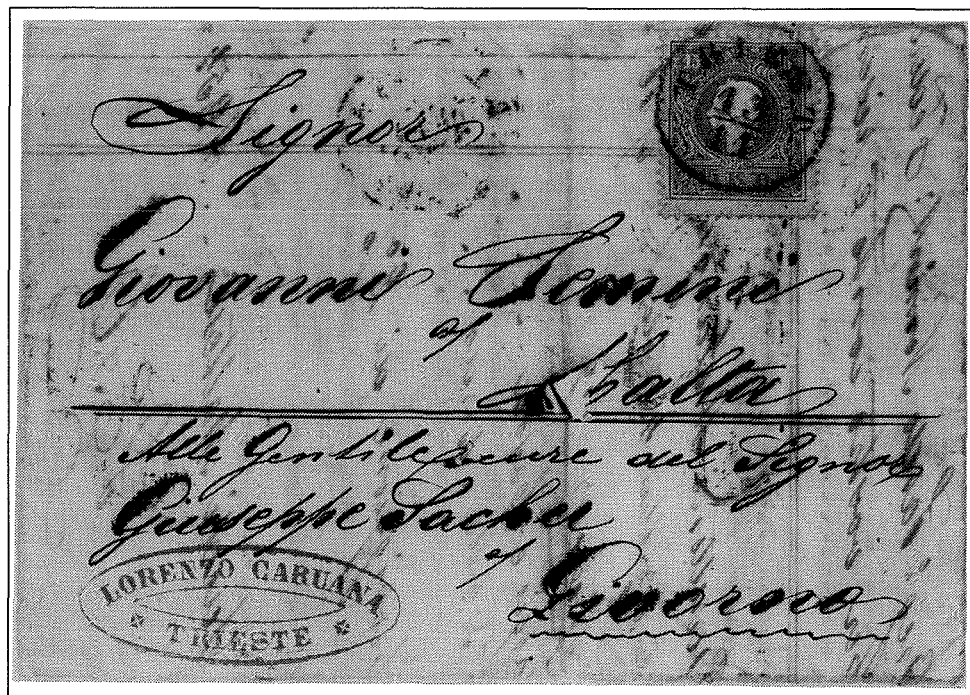 Signor
Giovanni Semini
a/
Malta
Alle Gentile cure del Signor
Giuseppe
a/
Livorno
LORENZO CARUANA
TRIESTE